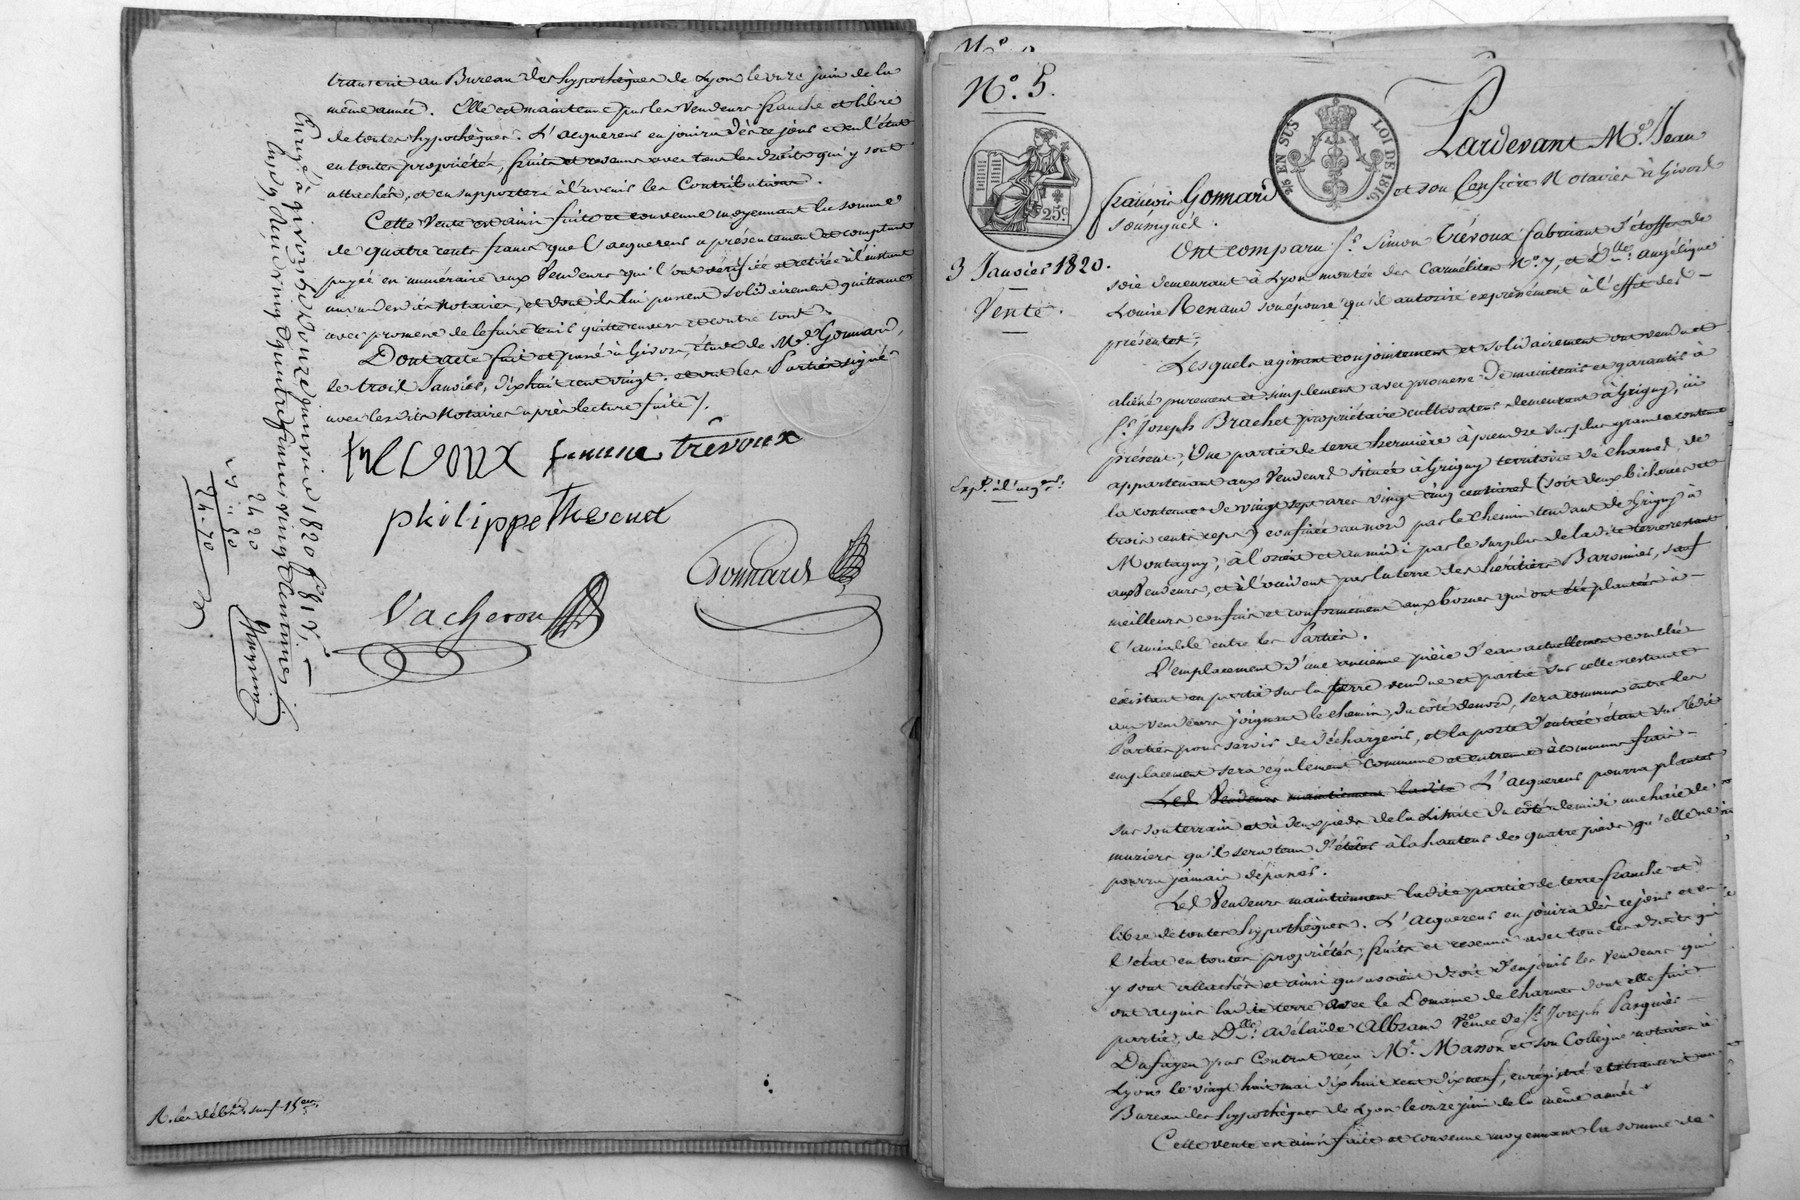 transcrit au Bureau des hypothèques de Lyon le onze juin de la
même année. Elle est maintenue par les Vendeurs franche et libre
de toutes hypothèques. L'acquereur en jouira dès ce jour et en l'état
en toutes propriétés, fruits et revenus avec tous les droits qui y sont
attachés, et en supportera à l'avenir les Contributions.
Cette Vente est ainsi faite et convenue moyennant la somme
de quatre cents francs que l'acquereur a présentement et comptant
payée en numéraire aux Vendeurs qui l'ont vérifiée et retirée à l'instant
au vu desdits Notaires, et dont ils lui passent solidairement quittance
avec promesse de le faire tenir quitte envers et contre tous.
Dont acte fait et passé à Givors, étude de Me. Gonnard,
le trois Janvier, dix huit cent vingt. et ont les Parties signé
avec lesdits Notaires après lecture faite /.
trevoux femme trévoux
philippe Thevenet
Gonnard
Vacheron
Enrgé à givors le douze janvier 1820 f°
reçu vingt quatre francs vingt centimes
24 20
24.70
R. les débris sauf 15
N°. 5.
EN SUS LOI DE 1816.
25c.
3 Janvier 1820.
Vente.
Exp. à l'acqr.
Pardevant Me. Jean
françois Gonnard et son Confrère Notaires à Givors
soussignés.
Ont comparu sr. Simon Trévoux fabricant d'étoffes de
soie demeurant à Lyon montée des Carmélites N°. 7, et Dlle. angélique
Louise Renaud son épouse qu'il autorise expressément à l'effet des
présentes;
Lesquels agissant conjointement et solidairement ont vendu et
aliéné purement et simplement avec promesse de maintenir et garantir à
sr. Joseph Brachet propriétaire cultivateur demeurant à Grigny, ici
présent, Une partie de terre hermière à prendre sur plus grande contenue
appartenant aux Vendeurs située à Grigny territoire de charmes, de
la contenue de vingt sept ares vingt cinq centiares (soit deux bicherées et
trois cents ceps) confinée au nord par le chemin tendant de Grigny à
Montagny, à l'orient et au midi par le surplus de ladite terre restant
aux Vendeurs, et à l'occident par la terre des héritiers Baronnier, sauf
meilleurs confins et conformément aux bornes qui ont été plantées à
l'amiable entre les Parties.
L'emplacement d'une ancienne pièce d'eau actuellement comblée
existant en partie sur la terre vendue et partie sur celle restant
aux vendeurs joignant le chemin, du côté de nord, sera commun entre les
Parties pour servir de déchargeoir, et la porte d'entrée étant sur ledit
emplacement sera également commune et entretenue à communs frais
Les Vendeurs maintiennent ladite L'acquereur pourra planter
sur son terrain et à deux pieds de la Limite du côté de midi une haie de
muriers qu'il sera tenu d'étêter à la hauteur de quatre pieds qu'elle ne
pourra jamais dépasser.
Les Vendeurs maintiennent ladite partie de terre franche et
libre de toutes hypothèques. L'acquereur en jouira dès ce jour et en
l'état en toutes propriétés, fruits et revenus avec tous les droits qui
y sont attachés et ainsi qu'avoient droit d'en jouir les Vendeurs qui
ont acquis ladite terre avec le Domaine de charmes dont elle fait
partie, de Dlle. adélaïde Albran Veuve de sr. Joseph Pasquier
Dufayen par Contrat reçu Me. Masson et son Collègue notaires à
Lyon le vingt huit mai dix huit cent dix neuf, enregistré et transcrit au
Bureau des hypothèques de Lyon le onze juin de la même année
Cette vente est ainsi faite et convenue moyennant la somme de